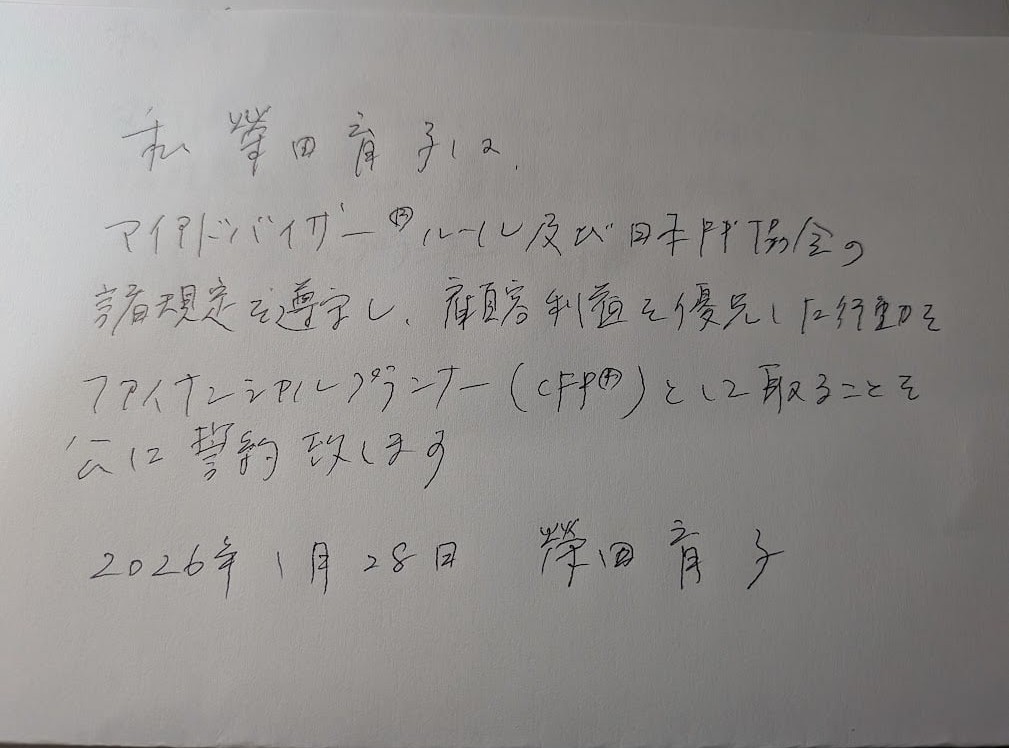 私 榮田育子は、
マイアドバイザー®ルール及び日本FP協会の
諸規定を遵守し、顧客利益を優先した行動を
ファイナンシャルプランナー(CFP®)として取ることを
公に誓約致します
2026年1月28日 榮田育子